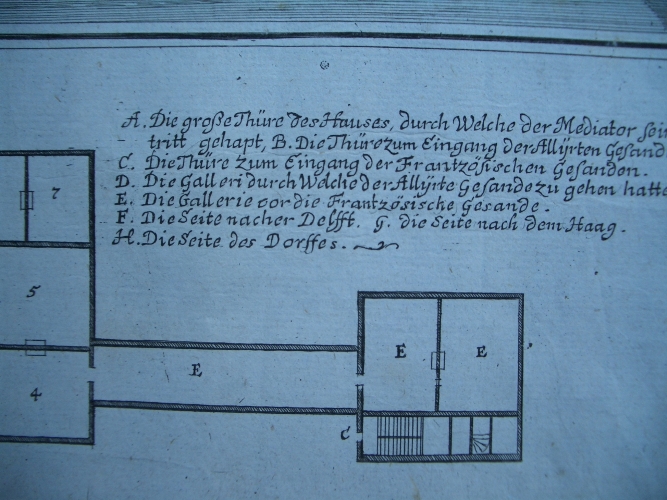 A. Die große Thüre des Hauses, durch Welche der Mediator sein
tritt gehapt, B. Die Thüre zum Eingang der Allijrten Gesand
C. Die Thüre zum Eingang der Frantzösischen Gesanden.
D. Die Galleri durch Welche der Allijrte Gesande zu gehen hatte
E. Die Gallerie vor die Frantzösische Gesande.
F. Die Seite nacher Delfft. G. die Seite nach dem Haag.
H. Die Seite des Dorffes.
7
5
E E
E
4
C